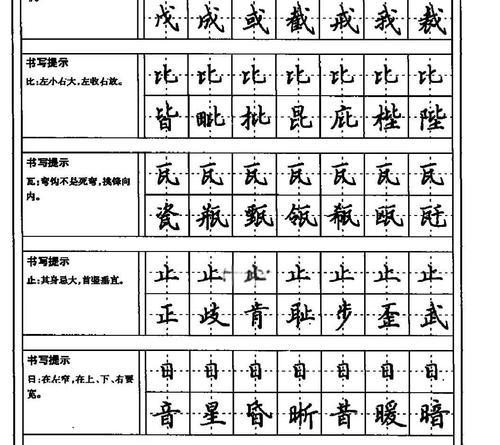 戊 成 或 截 戒 我 裁
书写提示
比:左小右大,左收右放。
比 比 比 比 比 比 比
皆 毗 批 昆 庇 楷 陛
书写提示
瓦:弯钩不是死弯,挑锋向
内。
瓦 瓦 瓦 瓦 瓦 瓦 瓦
瓷 瓶 甄 瓴 瓻 瓯
书写提示
止:其身忌大,首竖垂直。
止 止 止 止 止 止 止
正 歧 肯 耻 步 歪 武
书写提示
日:在左窄,在上、下、右要
宽。
日 日 日 日 日 日 日
音 星 昏 晰 昔 暖 暗